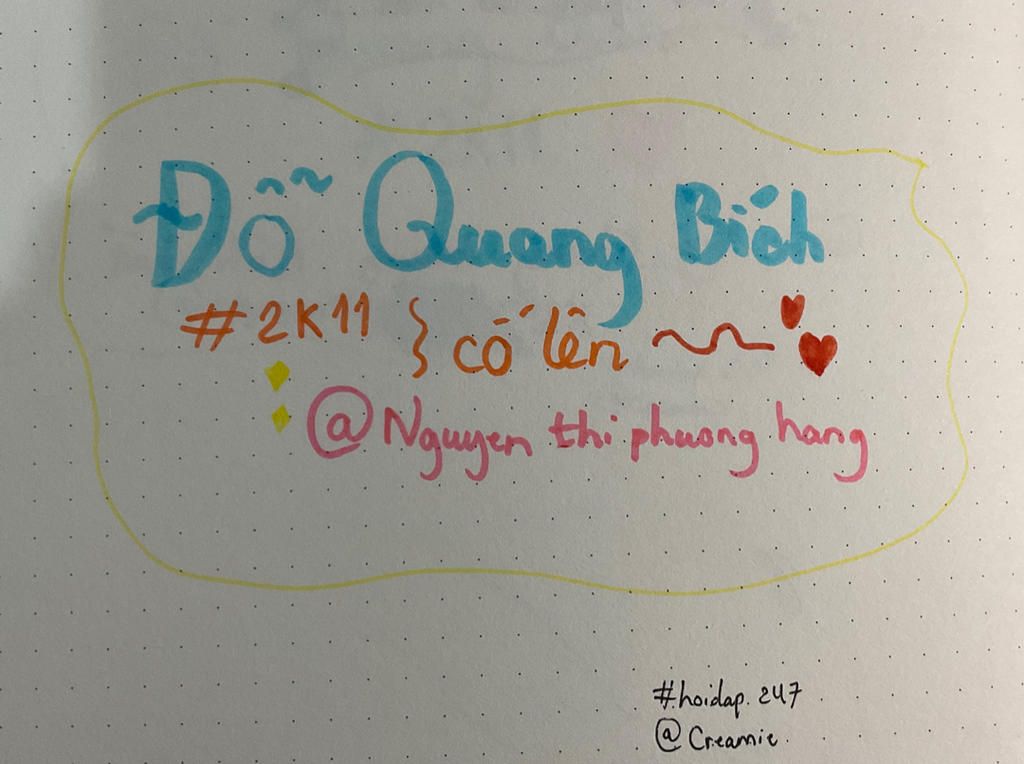 Đỗ Quang Bích
#2K11 } cố lên
@Nguyen thi phuong hang
#hoidap.247
@Creamie